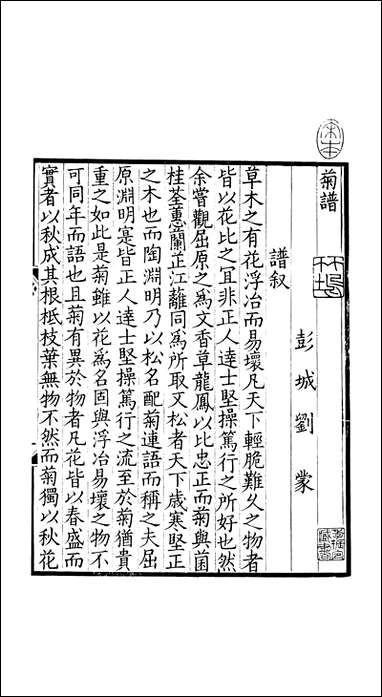 菊譜
彭城劉蒙
譜叙
草木之有花浮冶而易壞凡天下輕脆難久之物者
皆以花比之冝非正人達士堅操篤行之所好也然
余嘗觀屈原之爲文香草龍鳳以比忠正而菊與菌
桂荃蕙蘭芷江蘺同爲所取又松者天下歲寒堅正
之木也而陶淵明乃以松名配菊連語而稱之夫屈
原淵明寔皆正人達士堅操篤行之流至於菊猶貴
重之如此是菊雖以花爲名固與浮冶易壞之物不
可同年而語也且菊有異於物者凡花皆以春盛而
實者以秋成其根柢枝葉無物不然而菊獨以秋花
宋本